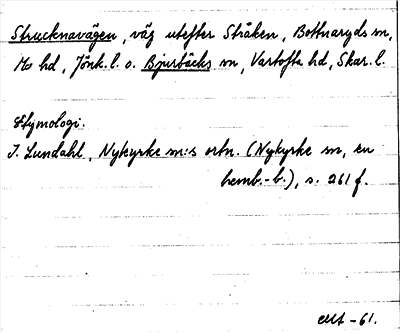 Strucknavägen, väg utefter Stråken, Bottnaryds sn,
Mo hd, Jönk. l. o. Bjurbäcks sn, Vartofta hd, Skar. l.
Etymologi.
I. Lundahl, Nykyrke sn:s ortn. (Nykyrke sn, en
hemb.-b.), s. 261 f.
-61.